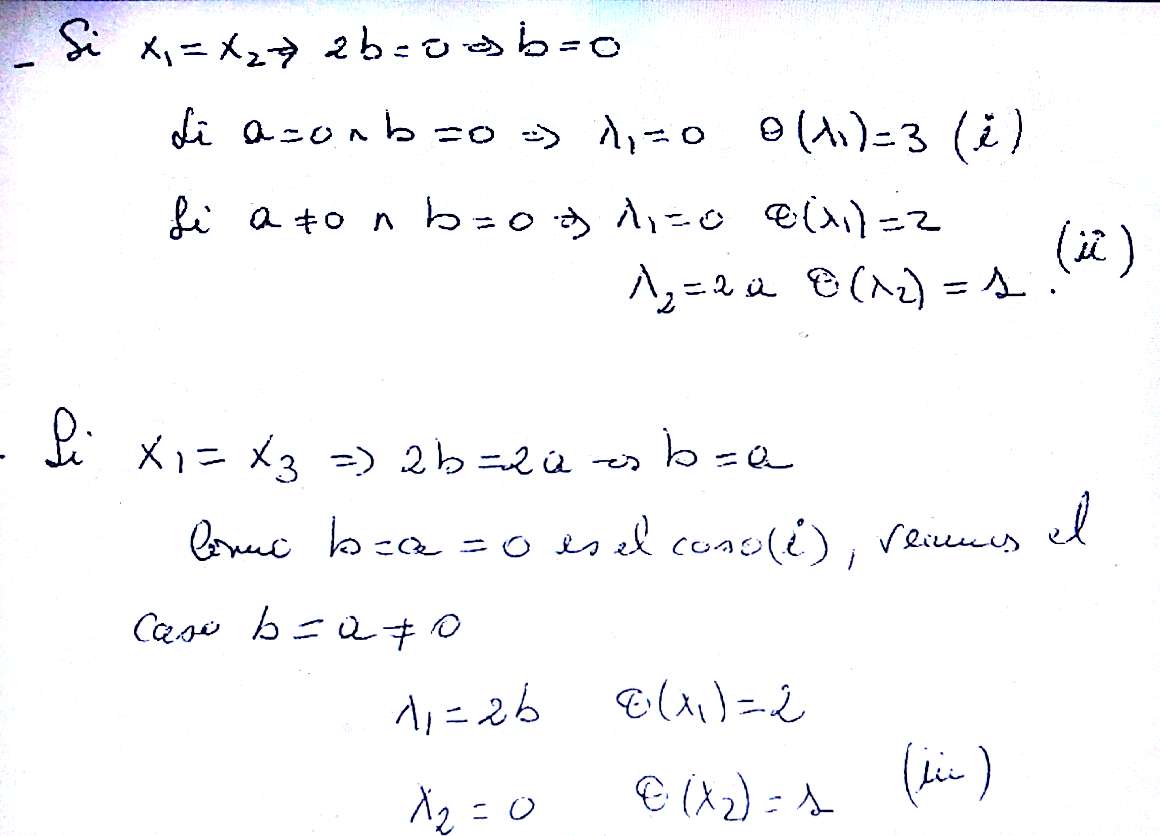 - Si x₁ = x₂ ⇒ 2b = 0 ⇒ b = 0
Si a = 0 ∧ b = 0 ⇒ λ₁ = 0 θ(λ₁) = 3 (i)
Si a ≠ 0 ∧ b = 0 ⇒ λ₁ = 0 θ(λ₁) = 2
(ii)
λ₂ = 2a θ(λ₂) = 1.
- Si x₁ = x₃ ⇒ 2b = 2a ⇒ b = a
Como b = a = 0 es el caso (i), veamos el
caso b = a ≠ 0
λ₁ = 2b θ(λ₁) = 2
λ₂ = 0 θ(λ₂) = 1 (iii)